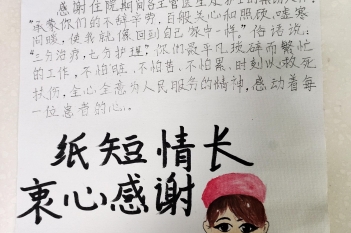 感谢住院期间各主管医生及护士的精心
"承蒙你们的不辞辛劳,百般关心和照顾,嘘寒
问暖,使我就像回到自己家中一样。"俗话说:
"三分治疗,七分护理"你们最平凡琐碎而繁忙
的工作,不怕脏、不怕苦、不怕累、时刻以救死
扶伤,全心全意为人民服务的精神,感动着每
一位患者的心。
纸短情长
衷心感谢